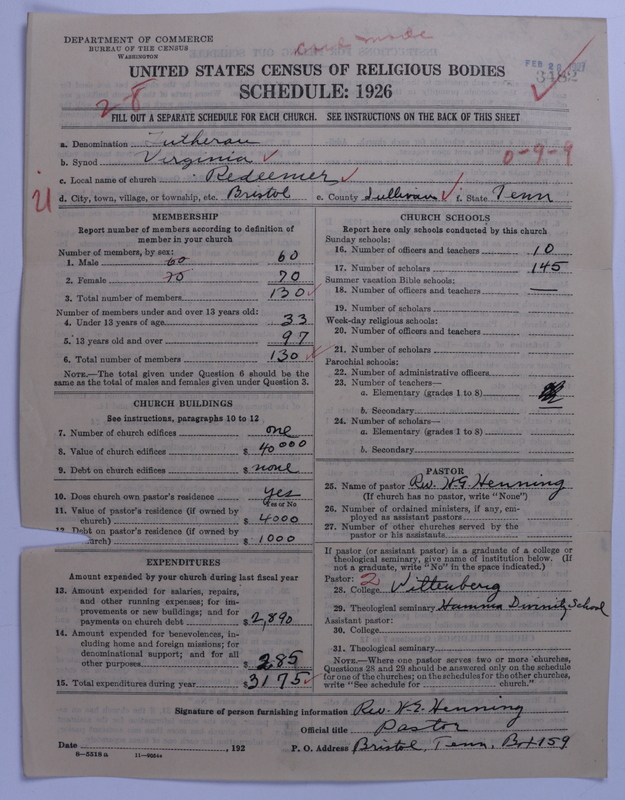 DEPARTMENT OF COMMERCE
BUREAU OF THE CENSUS
WASHINGTON
FEB 28 1927
3482
UNITED STATES CENSUS OF RELIGIOUS BODIES
SCHEDULE: 1926
28
FILL OUT A SEPARATE SCHEDULE FOR EACH CHURCH. SEE INSTRUCTIONS ON THE BACK OF THIS SHEET
a. Denomination Lutheran
b. Synod Virginia
0-9-9
c. Local name of church Redeemer
d. City, town, village, or township, etc. Bristol e. County Sullivan f. State Tenn
MEMBERSHIP
Report number of members according to definition of
member in your church
Number of members, by sex:
1. Male 60 60
2. Female 70 70
3. Total number of members 130
Number of members under and over 13 years old:
4. Under 13 years of age 33
5. 13 years old and over 97
6. Total number of members 130
NOTE.—The total given under Question 6 should be the
same as the total of males and females given under Question 3.
CHURCH BUILDINGS
See instructions, paragraphs 10 to 12
7. Number of church edifices one
8. Value of church edifices $ 40000
9. Debt on church edifices $ none
10. Does church own pastor's residence yes
Yes or No
11. Value of pastor's residence (if owned by
church) $ 4000
12. Debt on pastor's residence (if owned by
church) $ 1000
EXPENDITURES
Amount expended by your church during last fiscal year
13. Amount expended for salaries, repairs,
and other running expenses; for im-
provements or new buildings; and for
payments on church debt $ 2,890
14. Amount expended for benevolences, in-
cluding home and foreign missions; for
denominational support; and for all
other purposes $ 285
15. Total expenditures during year $ 3175
CHURCH SCHOOLS
Report here only schools conducted by this church
Sunday schools:
16. Number of officers and teachers 10
17. Number of scholars 145
Summer vacation Bible schools:
18. Number of officers and teachers —
19. Number of scholars
Week-day religious schools:
20. Number of officers and teachers
21. Number of scholars
Parochial schools:
22. Number of administrative officers
23. Number of teachers—
a. Elementary (grades 1 to 8)
b. Secondary
24. Number of scholars—
a. Elementary (grades 1 to 8)
b. Secondary
PASTOR
25. Name of pastor Rev. W.G. Henning
(If church has no pastor, write "None")
26. Number of ordained ministers, if any, em-
ployed as assistant pastors
27. Number of other churches served by the
pastor or his assistants
If pastor (or assistant pastor) is a graduate of a college or
theological seminary, give name of institution below. (If
not a graduate, write "No" in the space indicated.)
Pastor: 2
28. College Wittenberg
29. Theological seminary Hamma Divinity School
Assistant pastor:
30. College
31. Theological seminary
NOTE.—Where one pastor serves two or more churches,
Questions 28 and 29 should be answered only on the schedule
for one of the churches; on the schedules for the other churches,
write "See schedule for church."
Signature of person furnishing information Rev. W.G. Henning
Official title Pastor
Date , 192 P. O. Address Bristol, Tenn. Box 159
8-5518 a 11-9954